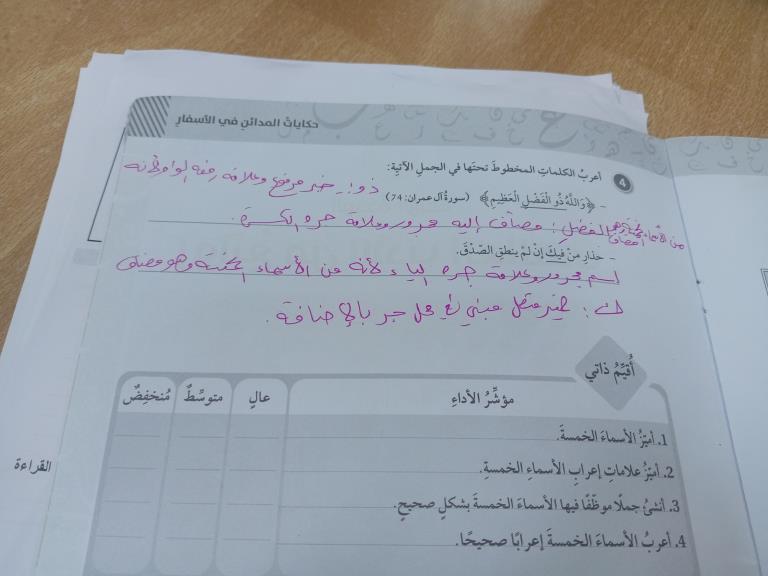 حكاياتُ المدائنِ في الأسفارِ
4 أعربُ الكلماتِ المخطوطَ تحتَها في الجملِ الآتيةِ:
ذو: خبر مرفوع وعلامة رفعه الواو لأنه
- ﴿وَاللَّهُ ذُو الْفَضْلِ الْعَظِيمِ﴾ (سورة آل عمران: 74)
من الأسماء الخمسة وهو مضاف
الفضل: مضاف إليه مجرور وعلامة جره الكسرة.
- حذارِ منْ فيكَ إنْ لمْ ينطقِ الصّدْقَ.
اسم مجرور وعلامة جره الياء لأنه من الأسماء الخمسة وهو مضاف
ك: ضمير متصل مبني في محل جر بالإضافة.
أُقيِّمُ ذاتي
مؤشِّرُ الأداءِ عالٍ متوسِّطٌ مُنخفِضٌ
1. أميّزُ الأسماءَ الخمسةَ.
2. أميّزُ علاماتِ إعرابِ الأسماءِ الخمسةِ.
3. أنشئُ جملًا موظّفًا فيها الأسماءَ الخمسةَ بشكلٍ صحيحٍ.
4. أعربُ الأسماءَ الخمسةَ إعرابًا صحيحًا.
القراءة